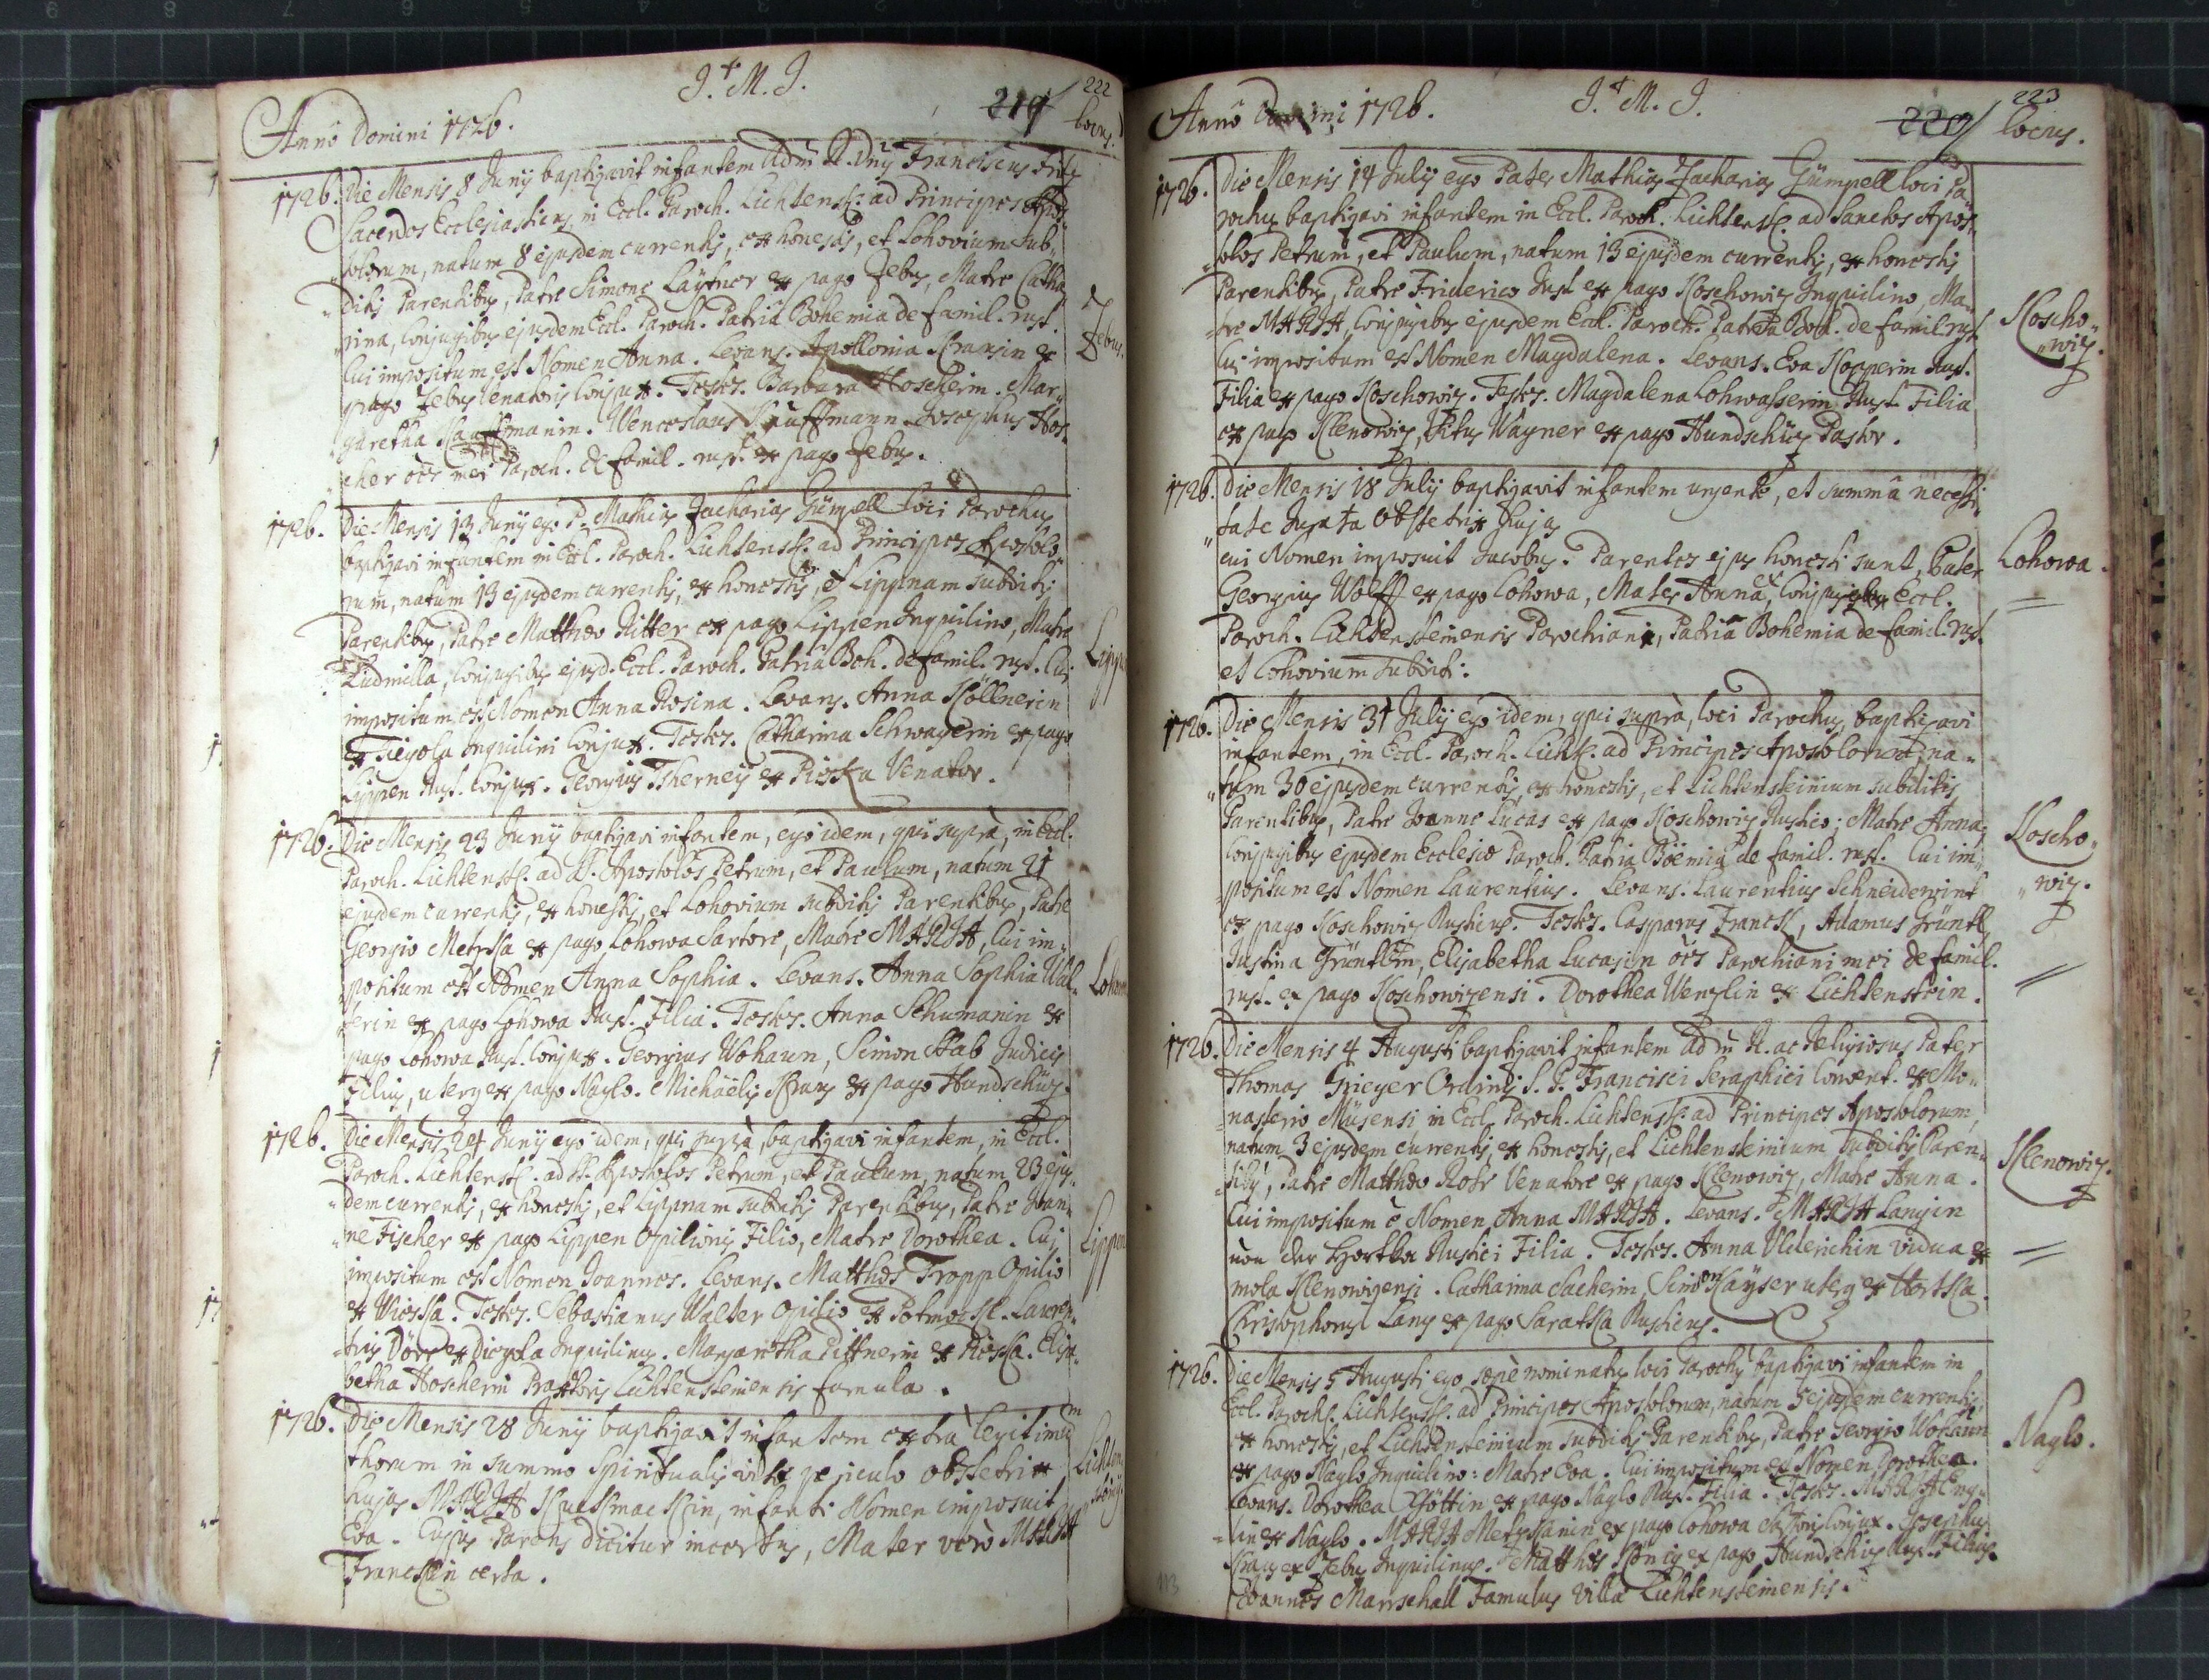 J. M. J.
222
Anno Domini 1726.
219
locus.
1726. Die Mensis 8 Junij baptizavit infantem Adm R. Dnus Franciscus Fritz
Sacerdos Ecclesiasticus, in Eccl. Paroch. Lichtenst: ad Principes Apos-
tolorum, natum 8 ejusdem currentis, ex honestis, et Lohovium Sub-
ditis Parentibus, Patre Simone Laÿtner ex pago Jebus, Matre Catha
rina, Conjugibus ejusdem Eccl. Paroch. Patriâ Bohemia de famil. rust.
Jebus.
Cui impositum est Nomen Anna. Levans. Apollonia Kransin ex
pago Jebus Venatoris Conjux. Testes. Barbara Hoscherin. Mar-
garetha Kauffmanin. Wenceslaus Kauffmann. Josephus Hos-
cher oẽs mei Paroch. de famil. rust. ex pago Jebus.
1726. Die Mensis 13 Junij ego P. Mathias Zacharias Gümpell loci Parochus
baptizavi infantem in Eccl. Paroch. Lichtenst: ad Principes Apostolo-
rum, natum 13 ejusdem currentis, ex honestis, et Lippinam subditis
Parentibus, Patre Matthæo Ritter ex pago Lippen Inquilino, Matre
Ludmilla, Conjugibus ejusd. Eccl. Paroch. Patriâ Boh. de famil. rust. Cui
impositum est Nomen Anna Rosina. Levans. Anna Köllnerin
ex Tiegola Inquilini Conjux. Testes. Catharina Schwagerin ex pago
Lippen Rust. Conjux. Georgius Tscherneÿ ex Piska Venator.
1726. Die Mensis 23 Junij baptizavi infantem, ego idem, qui suprà, in Eccl.
Paroch. Lichtenst: ad SS. Apostolos Petrum, et Paulum, natum 21
ejusdem currentis, ex honestis, et Lohovium subditis Parentibus, Patre
Georgio Metzka ex pago Lohowa Sartore, Matre MARIA, Cui im-
positum est Nomen Anna Sophia. Levans. Anna Sophia Wal-
terin ex pago Lohowa Rust. Filia. Testes. Anna Schumanin ex
pago Lohowa Rust. Conjux. Georgius Wohaun, Simon Stab Judicis
Filius, uterq ex pago Naglo. Michaëlis Kraus ex pago Hundschüz.
1726. Die Mensis 24 Junij ego idem, qui suprà, baptizavi infantem, in Eccl.
Paroch. Lichtenst: ad SS. Apostolos Petrum, et Paulum, natum 23 ejus-
dem currentis, ex honestis, et Lippnam subditis Parentibus, Patre Joan-
ne Fischer ex pago Lippen Opilionis Filio, Matre Dorothea. Cui
Lippen
impositum est Nomen Joannes. Levans. Matthæs Tropp Opilio
ex Wießka. Testes. Sebastianus Walter Opilio ex Potmockl. Lauren-
tius Dörr ex Diegola Inquilinus. Margaretha Pittnerin ex Wießka. Elisa-
betha Hoscherin Prætoris Lichtensteinensis famula.
1726. Die Mensis 28 Junij baptizavit infantem extrà legitimum
thorum in summo Spiritualis vitæ periculo Obstetrix
hujas MARIA Kueßmackin, infanti Nomen imposuit
Eva. Cujus Parens dicitur incertus, Mater verò MARIA
Francklin certa.
J. M. J.
223
Anno Domini 1726.
220
locus.
1726. Die Mensis 14 Julij ego Pater Mathias Zacharias Gümpell loci Pa
rochus baptizavi infantem in Eccl. Paroch. Lichtenst: ad Sanctos Apos-
tolos Petrum, et Paulum, natum 13 ejusdem currentis, ex honestis
Parentibus, Patre Friderico Just ex pago Koschowiz Inquilino, Ma-
tre MARIA, Conjugibus ejusdem Eccl. Paroch. Patriâ Boh. de famil. rust.
Koscho-
wiz.
Cui impositum est Nomen Magdalena. Levans. Eva Kopperin Rust.
Filia ex pago Koschowiz. Testes. Magdalena Lohwasserin Rust. Filia
ex pago Klenowiz, Vitus Wagner ex pago Hundschüz Pastor.
1726. Die Mensis 18 Julij baptizavit infantem urgente, et summâ necessi-
tate Jurata Obstetrix hujas
cui Nomen imposuit Jacobus. Parentes ejus honesti sunt, Pater
Lohowa.
Georgius Wolff ex pago Lohowa, Mater Anna, Conjuges Eccl.
Paroch. Lichtensteinensis Parochiani, Patriâ Bohemia de famil. rust.
et Lohovium subditi.
1726. Die Mensis 31 Julij ego idem, qui suprà, loci Parochus, baptizavi
infantem, in Eccl. Paroch. Lichst: ad Principes Apostolorum, na-
tum 30 ejusdem currentis, ex honestis, et Lichtensteinium subditis
Parentibus, Patre Joanne Lucas ex pago Koschowiz Rustico; Matre Anna,
Conjugibus ejusdem Ecclesiæ Paroch. Patria Böemiâ de famil. rust. Cui im-
Koscho-
wiz.
positum est Nomen Laurentius. Levans. Laurentius Schneiderwint
ex pago Koschowiz Rusticus. Testes. Casparus Franckl, Adamus Grüntl,
Justina Grüntlin, Elisabetha Lucasin oẽs Parochiani mei de famil.
rust. ex pago Koschowizensi. Dorothea Wenzlin ex Lichtenstein.
1726. Die Mensis 4 Augusti baptizavit infantem Adm R. ac Religiosus Pater
Thomas Grieger Ordinis S. P. Francisci Seraphici Convent. ex Mo-
nasterio Müsensi in Eccl. Paroch. Lichtenst: ad Principes Apostolorum,
natum 3 ejusdem currentis, ex honestis, et Lichtensteinium subditis Paren-
tibus, Patre Matthæo Rohr Venatore ex pago Klenowiz, Matre Anna.
Klenowiz.
Cui impositum ẽ Nomen Anna MARIA. Levans. MARIA Langin
von der Hortka Rustici Filia. Testes. Anna Ulderichin vidua ex
mola Klenowizensi. Catharina Sacherin, Simon Kaÿser uterq ex Hortka.
Christophorus Lang ex pago Saratka Rusticus.
1726. Die Mensis 5 Augusti ego sæpè nominatus loci Parochus baptizavi infantem in
Eccl. Paroch. Lichtenst: ad Principes Apostolorum, natum 5 ejusdem currentis,
ex honestis, et Lichtensteinium subditis Parentibus, Patre Georgio Wohaun
Naglo.
ex pago Naglo Inquilino: Matre Eva. Cui impositum est Nomen Dorothea.
Levans. Dorothea Göttin ex pago Naglo Rust. Filia. Testes. MARIA Eng-
lin ex Naglo. MARIA Metzkanin ex pago Lohowa Sartoris Conjux. Josephus
Kraus ex Jebus Inquilinus. Matthæs König ex pago Hundschüz Rust. Filius.
Joannes Marschall Famulus Villæ Lichtensteinensis.
113